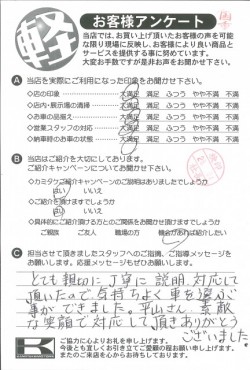 軽
お客様アンケート
当店では、お買い上げ頂いたお客様の声を可能
な限り現場に反映し、お客様により良い商品と
サービスを提供する事に努めています。
大変お手数ですが是非お声をお聞かせ下さい。
A 当店を実際にご利用になった印象をお聞かせ下さい。
◇店の印象 大満足 満足 ふつう やや不満 不満
◇店内・展示場の清掃 大満足 満足 ふつう やや不満 不満
◇お車の品揃え 大満足 満足 ふつう やや不満 不満
◇営業スタッフの対応 大満足 満足 ふつう やや不満 不満
◇納車時のお車の状態 大満足 満足 ふつう やや不満 不満
B 当店はご紹介を大切にしております。
ご紹介キャンペーンについてお聞かせ下さい。
◇カミタケご紹介キャンペーンのご説明はありましたでしょうか
はい いいえ
◇ご紹介頂けますでしょうか
はい いいえ
◇具体的にご紹介頂ける方とのご関係をお聞かせ頂けますでしょうか
ご親族 ご友人 職場の方 機会があれば紹介したい
C 担当させて頂きましたスタッフへのご指摘、ご指導メッセージを
お願いします。応援メッセージもぜひお願いします。
とても親切に丁寧に説明、対応して
頂いたので、気持ちよく車を選ぶ
事ができました。平山さん、素敵
な笑顔で対応して頂きありがとう
ございました。
ご協力に心よりお礼を申し上げます。
今後とも宜しくお引き立てご愛顧の程お願い申し上げます。
またのご来店を心からお待ちしております。